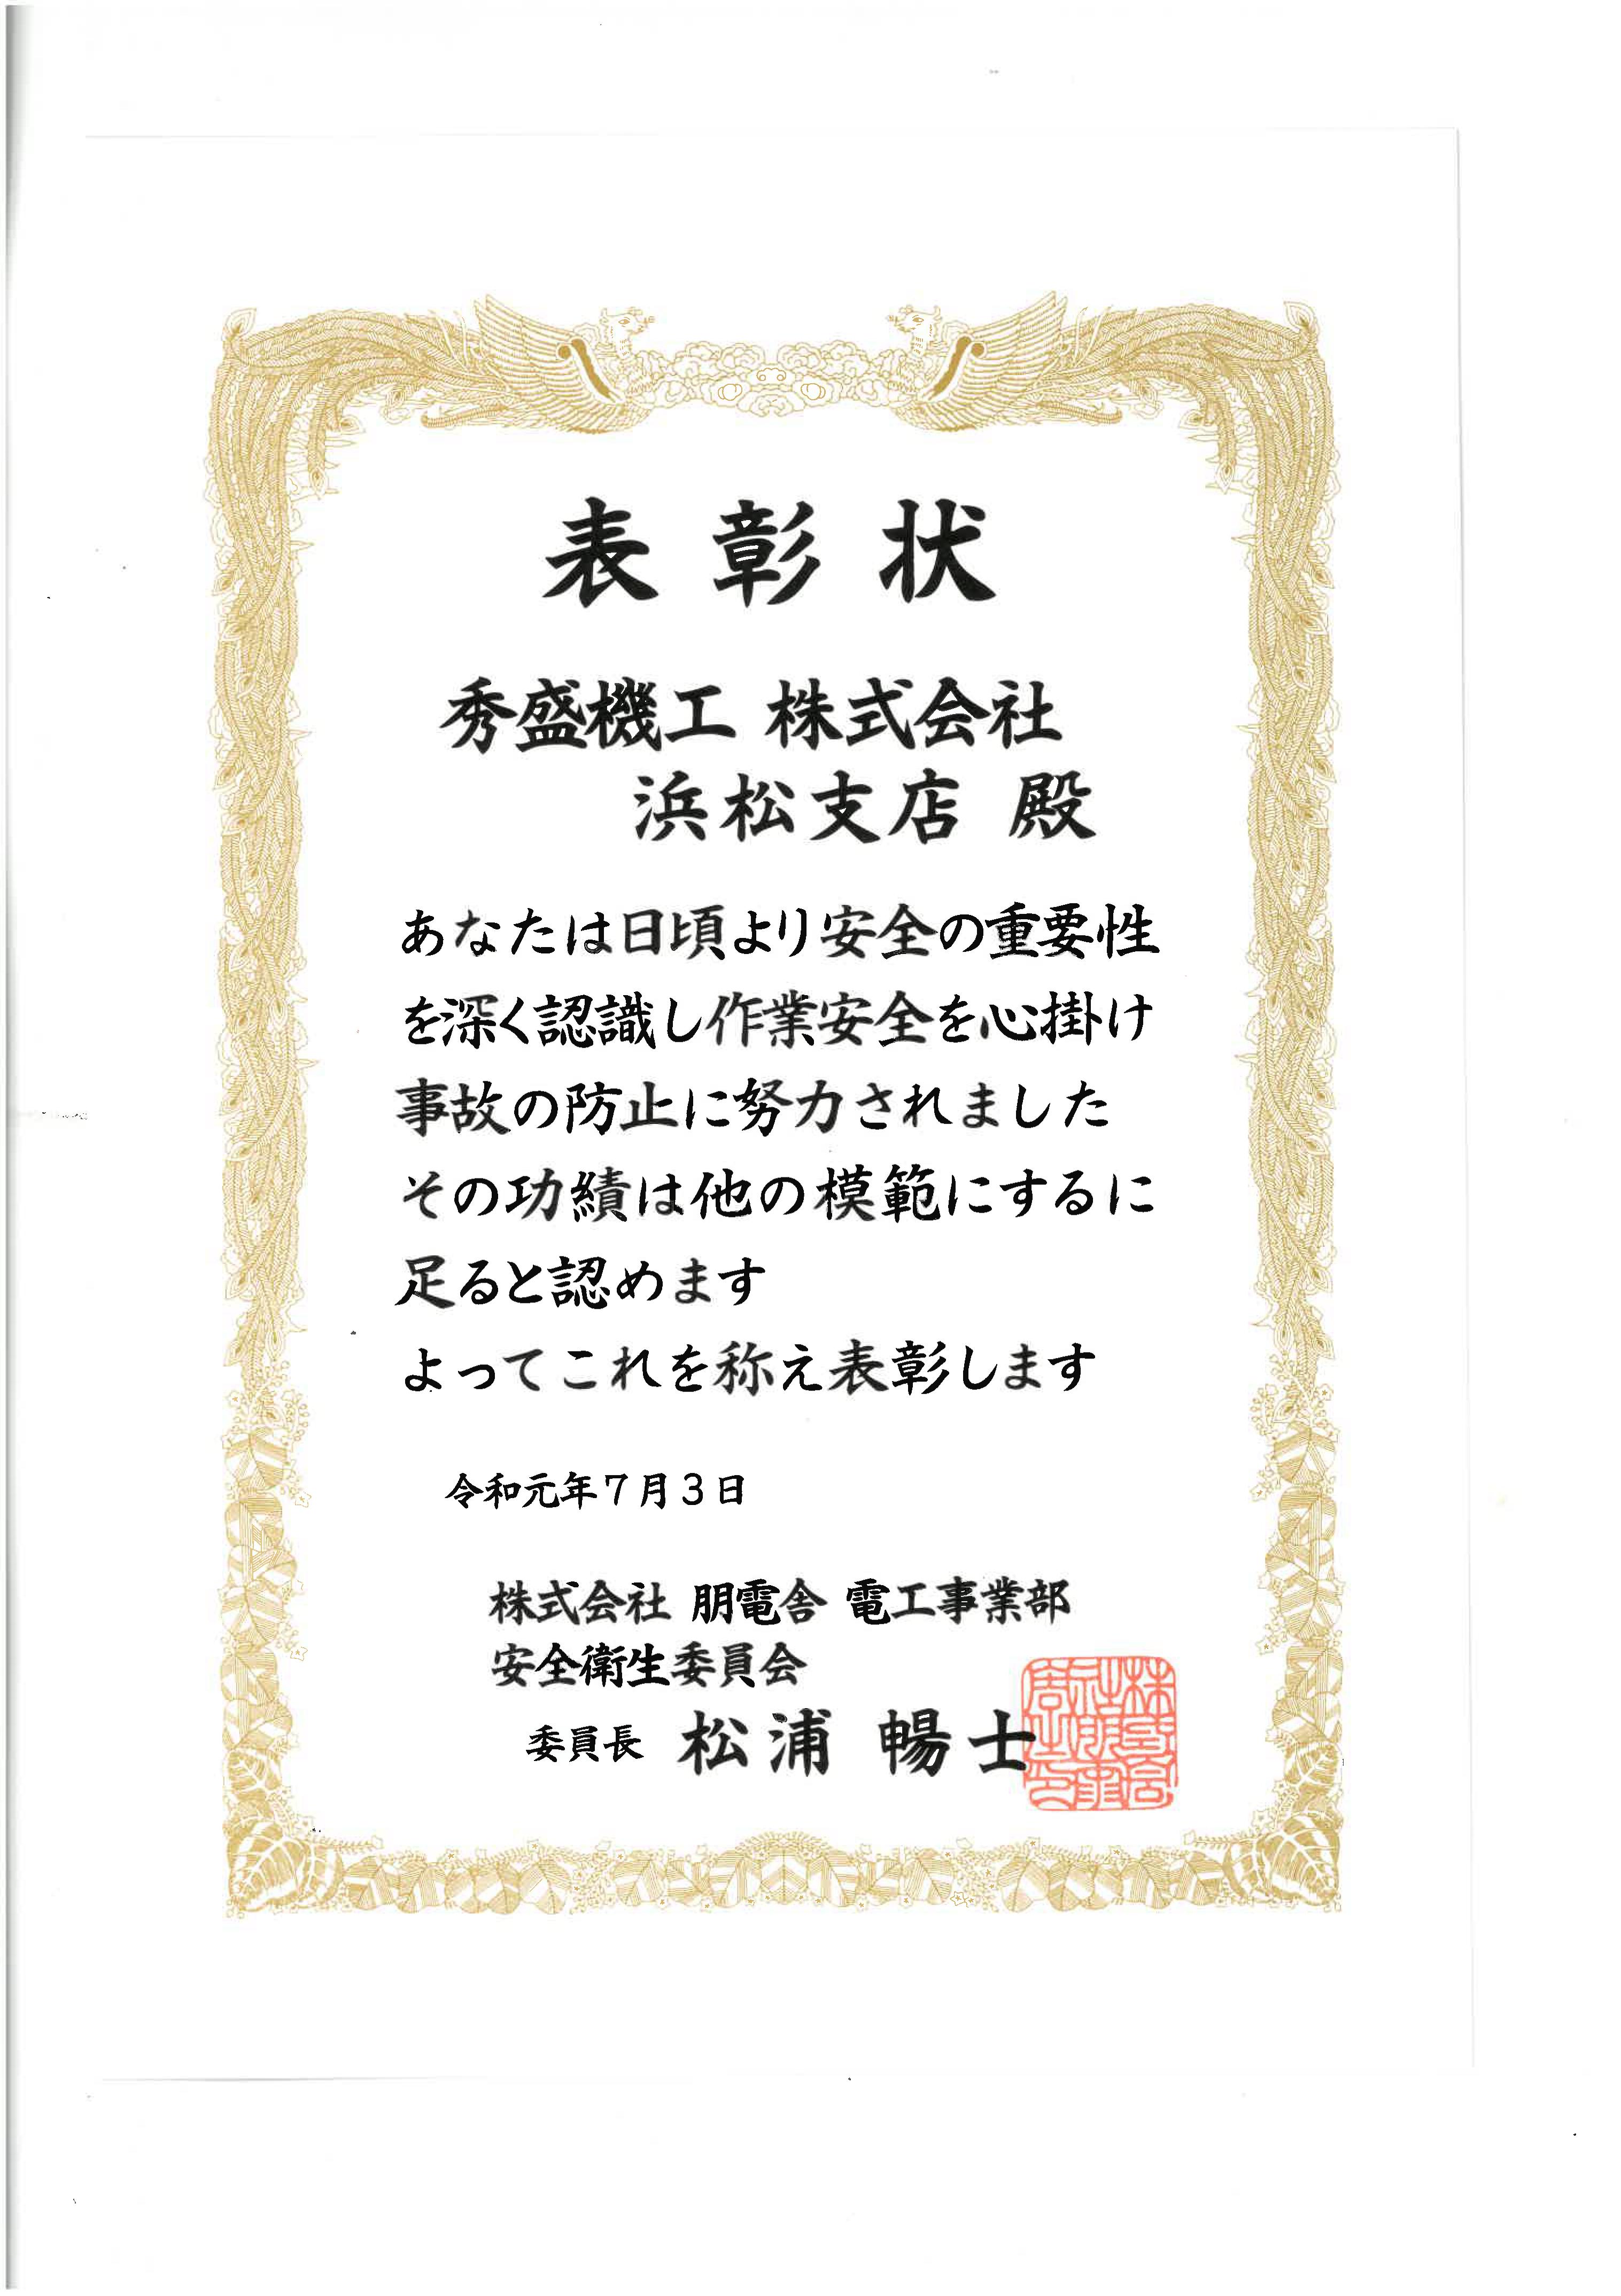 表彰状
秀盛機工 株式会社
浜松支店 殿
あなたは日頃より安全の重要性
を深く認識し作業安全を心掛け
事故の防止に努力されました
その功績は他の模範にするに
足ると認めます
よってこれを称え表彰します
令和元年７月３日
株式会社 朋電舎 電工事業部
安全衛生委員会
委員長 松浦 暢士